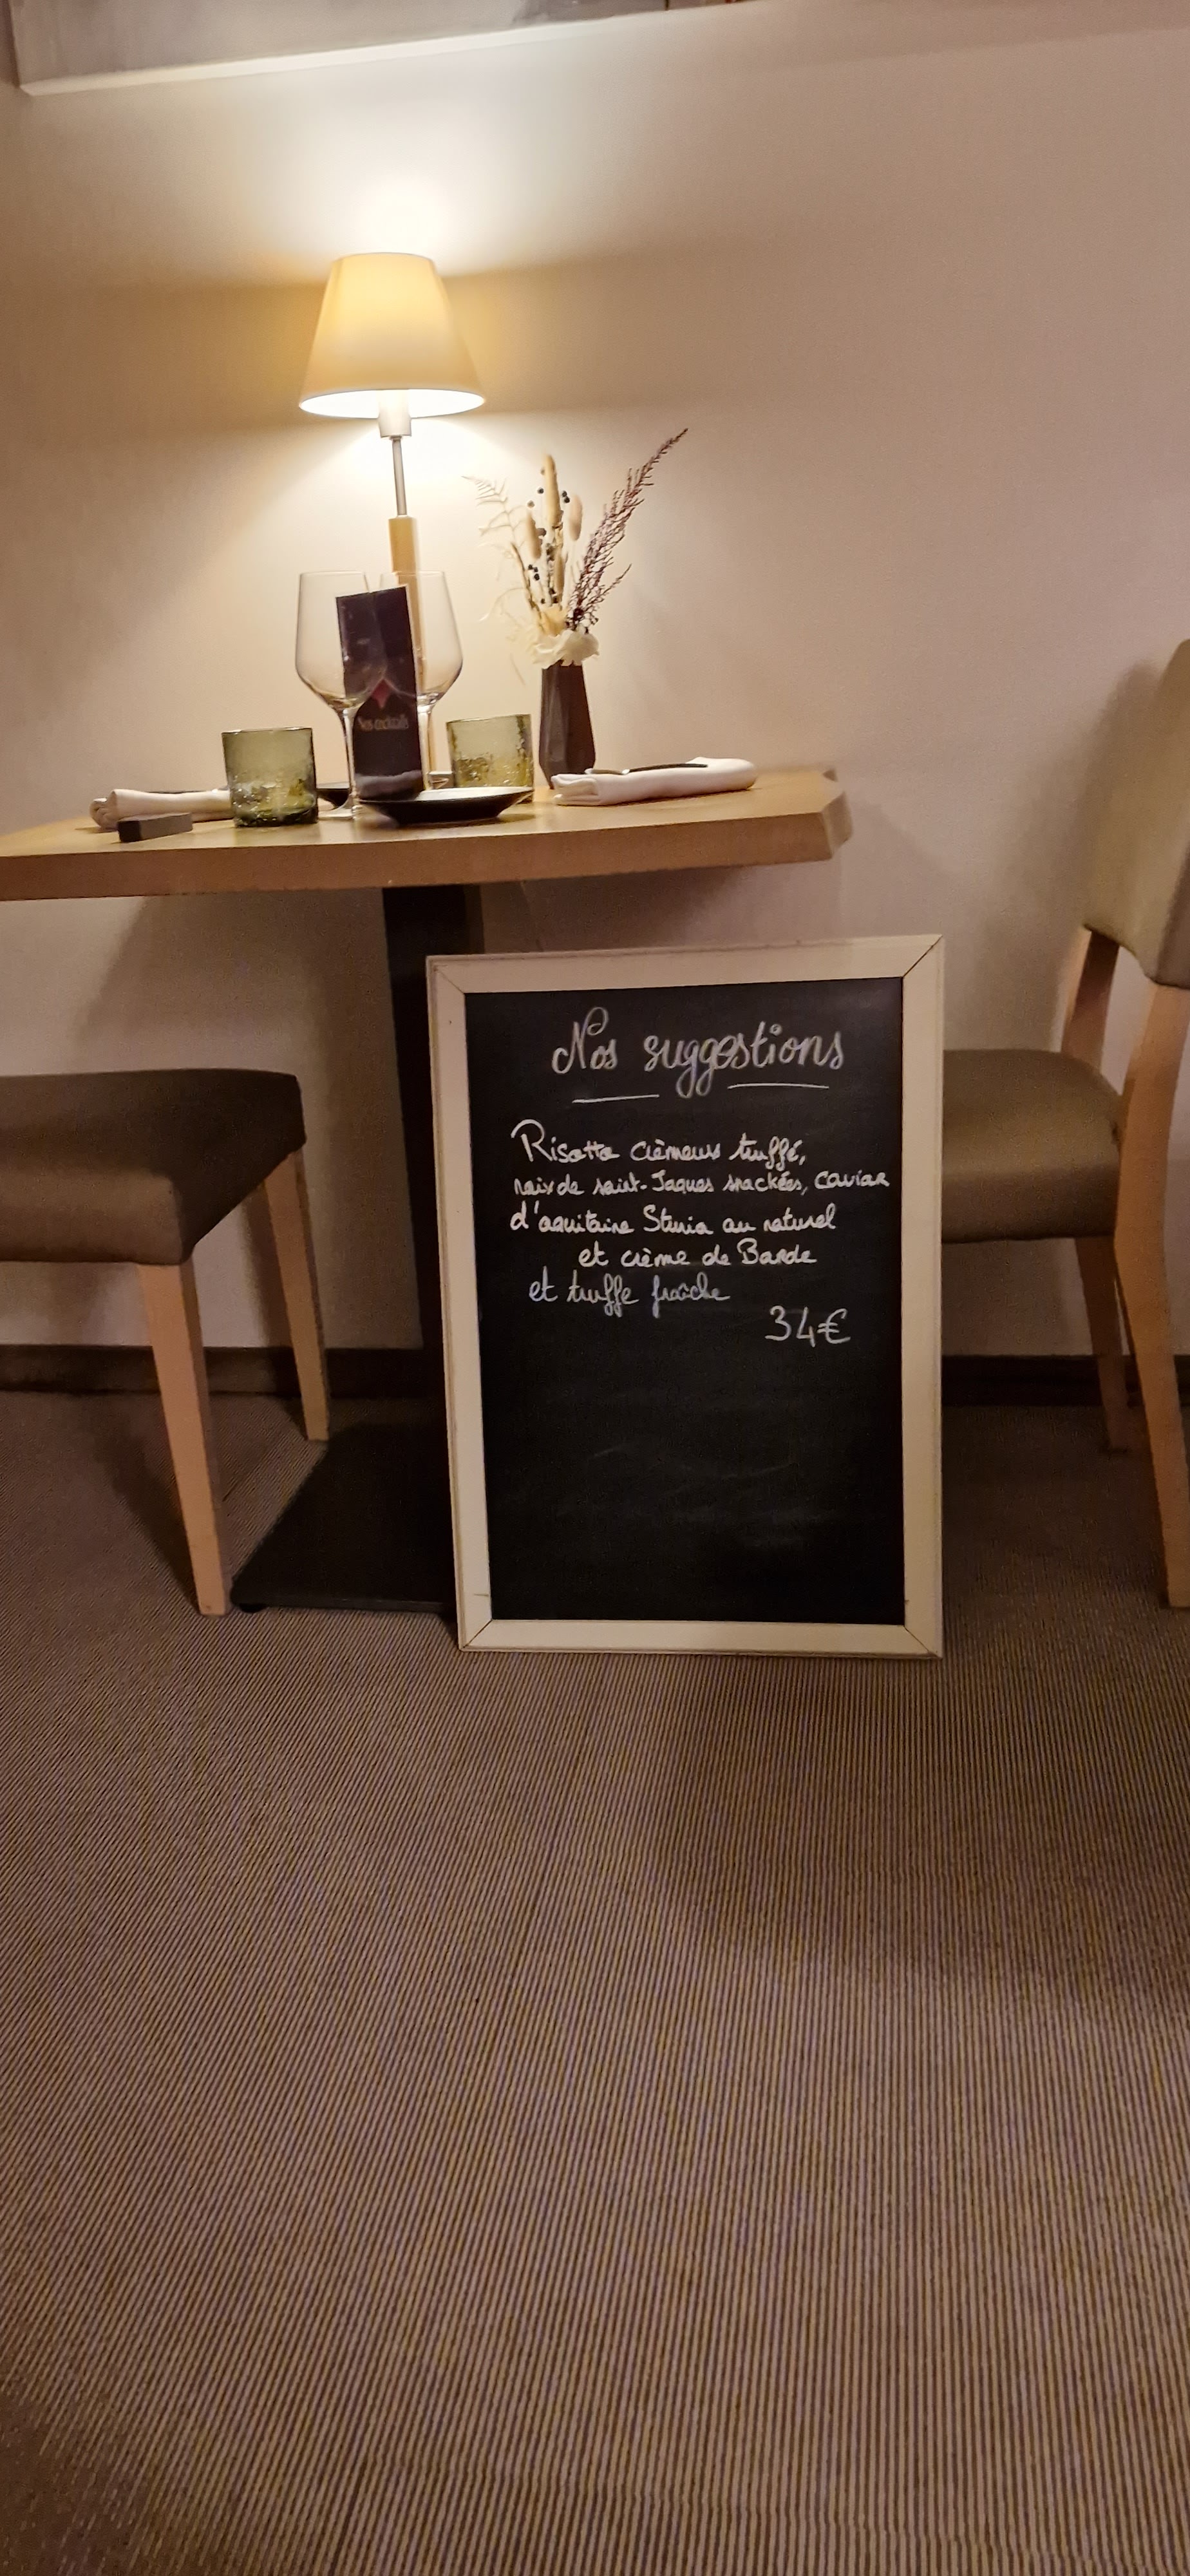 Nos cocktails
Nos suggestions
Risotto crèmeux truffé,
noix de saint-Jaques snackées, caviar
d'aquitaine Sturia au naturel
et crème de Barde
et truffe fraîche
34€